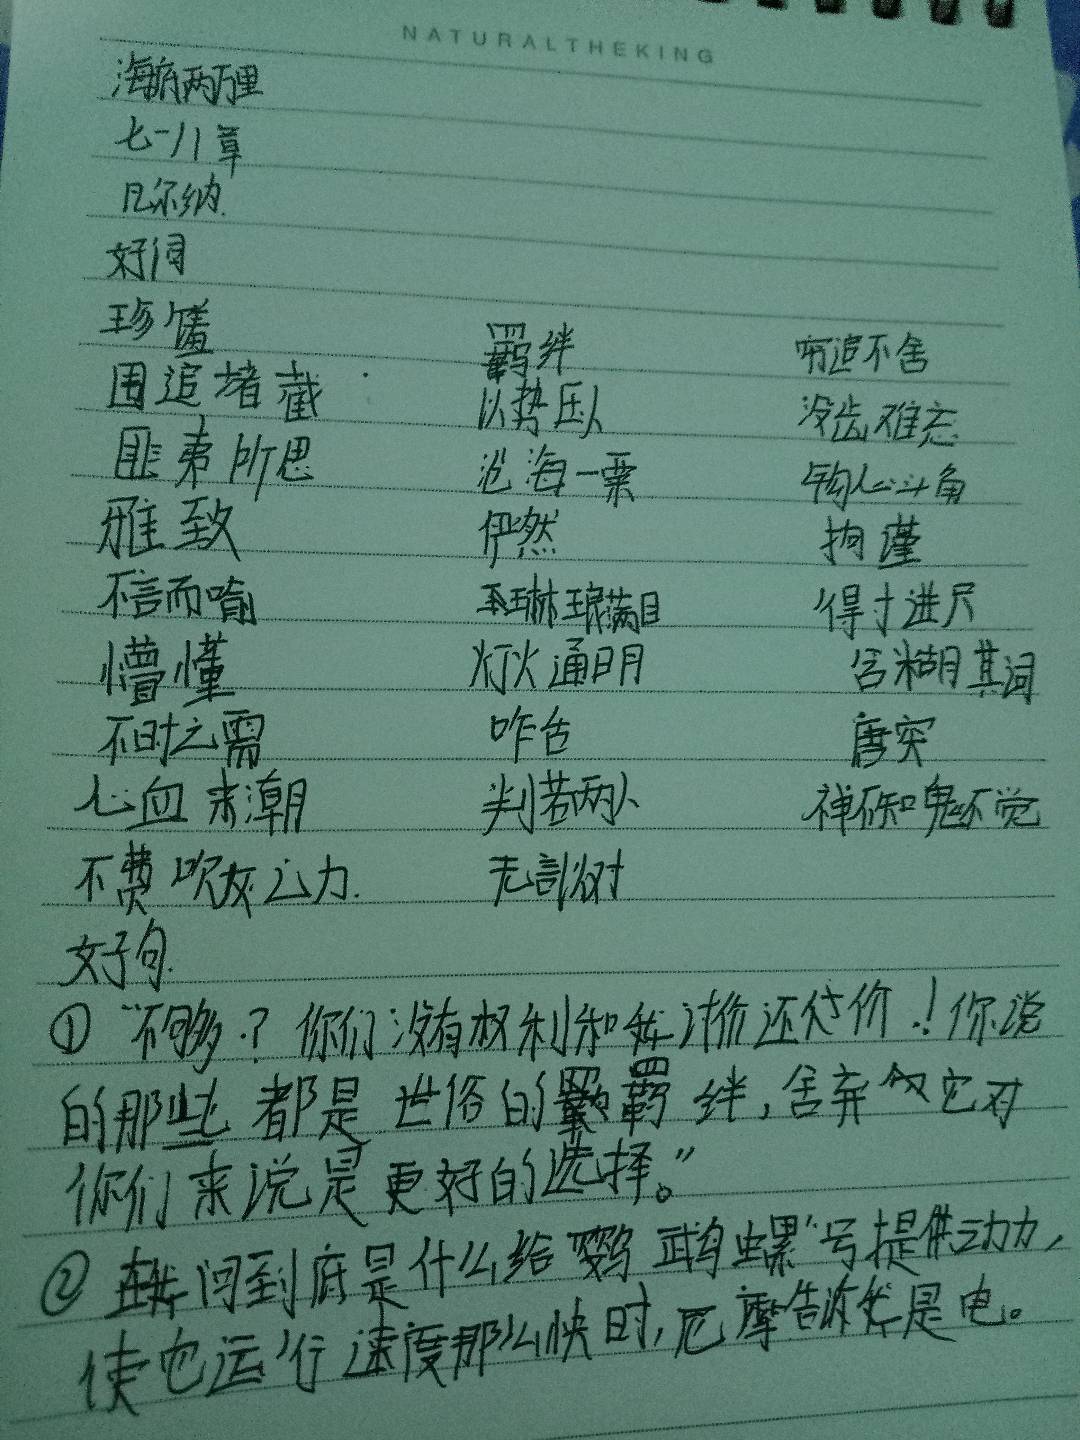 NATURALTHEKING
海底两万里
七一八章
凡尔纳.
好词
珍馐 羁绊 穷追不舍
围追堵截 以势压人 没齿难忘
匪夷所思 沧海一粟 钩心斗角
雅致 俨然 拘谨
不言而喻 琳琅满目 得寸进尺
懵懂 灯火通明 含糊其词
不时之需 咋舌 唐突
心血来潮 判若两人 神不知鬼不觉
不费吹灰之力. 无言以对
好句.
①“不够？你们没有权利和我讨价还价！你说
的那些都是世俗的羁绊，舍弃它对
你们来说是更好的选择。”
②我问到底是什么给“鹦鹉螺”号提供动力，
使它运行速度那么快时，尼摩告诉我是电。